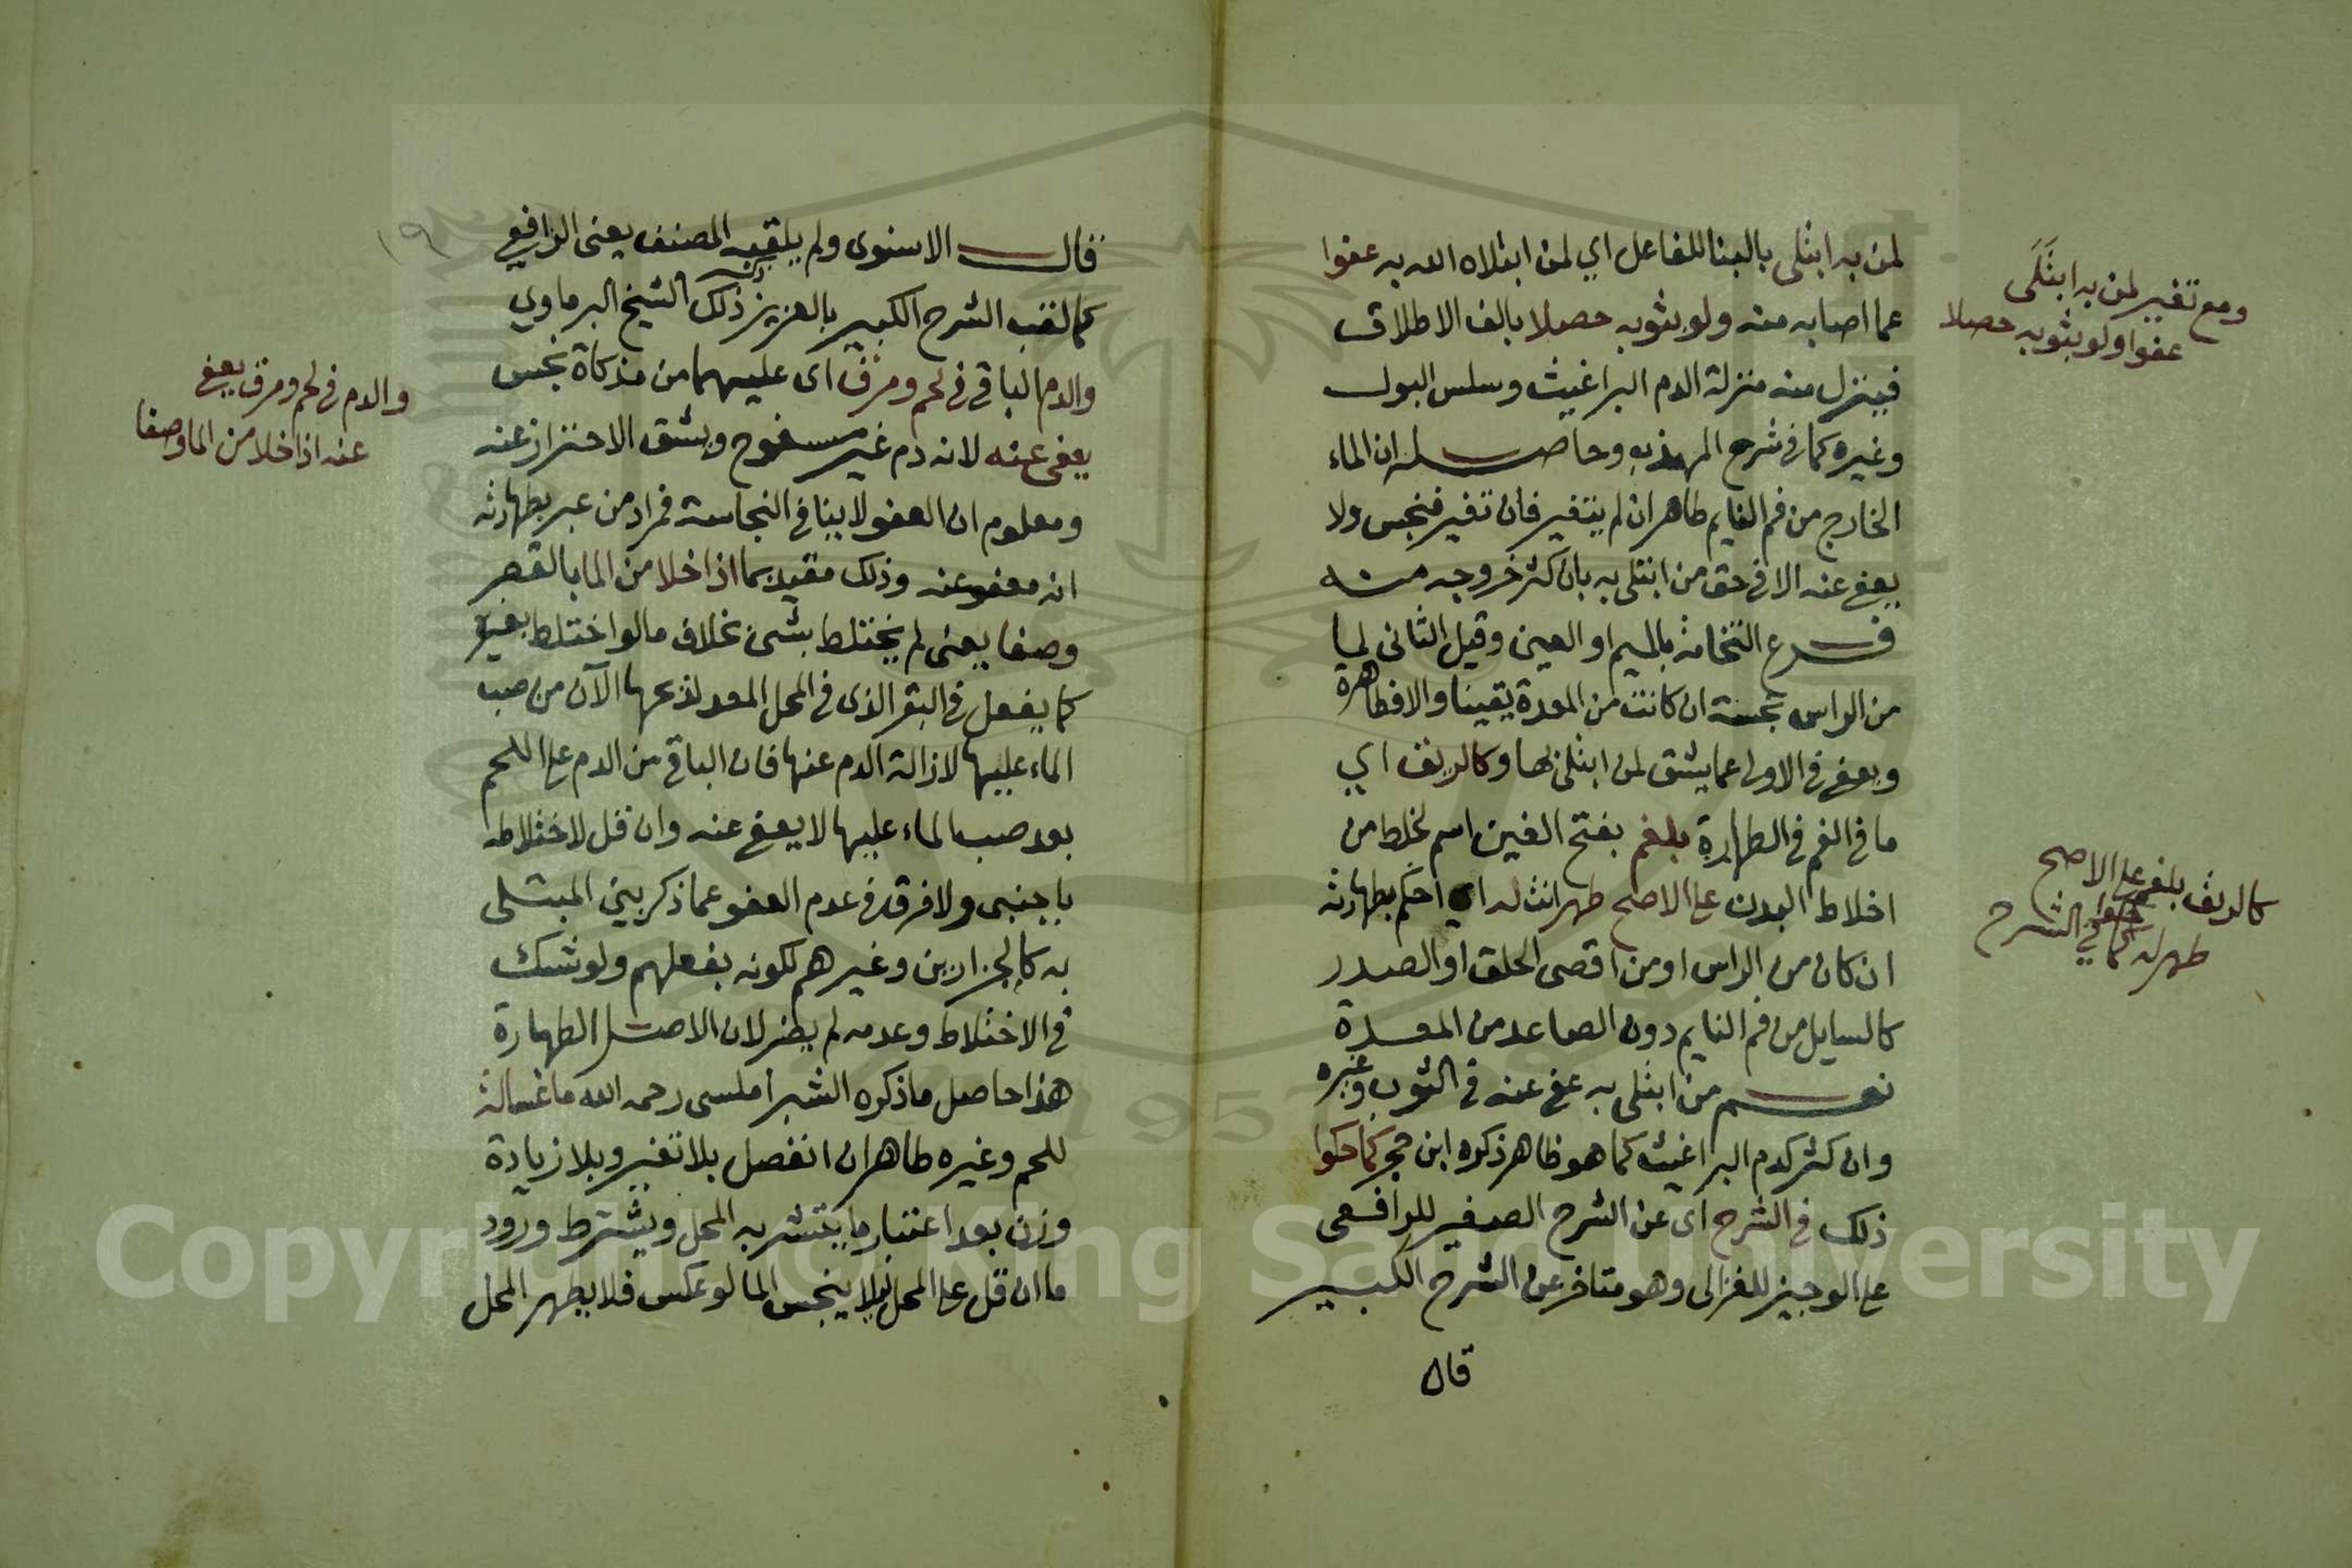 لمن به ابتلى بالبنا للفاعل اي لمن ابتلاه الله به عفوا
عما اصابه منه ولو بثوبه حصلا بالف الاطلاق
فينزل منه منزلة الدم البراغيث وسلس البول
وغيره كما في شرح المهذب وحاصله ان الماء
الخارج من فم النايم طاهر ان لم يتغير فان تغير فنجس ولا
يعفى عنه الا في حق من ابتلى به بان كثر خروجه منه
فرع النخامة بالميم او العين وقيل الثانى لما
من الراس نجسة ان كانت من المعدة يقينا والا فطاهرة
ويعفى في الاولى عما يشق لمن ابتلى بها وكالريق اي
ما في الفم في الطهارة بلغم بفتح الغين اسم لخلط من
اخلاط البدن على الاصح طهرانث له اي احكم بطهارته
ان كان من الراس او من اقصى الحلق او الصدر
كالسايل من فم النايم دون الصاعد من المعدة
نعم من ابتلى به عفى عنه في الثوب وغيره
وان كثر كدم البراغيث كما هو ظاهر ذكره ابن حجر كما حكوا
ذلك في الشرح اى عن الشرح الصغير للرافعى
على الوجيز للغزالى وهو متاخر عن الشرح الكبير
قال
ومع تغير لمن به ابتلى
عفوا ولو بثوبه حصلا
كالريق بلغم على الاصح
طهر له كما حكوا في الشرح
١٩
قال الاسنوى ولم يلقبه المصنف يعنى الرافعي
كما لقب الشرح الكبير بالعزيز ذكر ذلك الشيخ البرماوي
والدم الباقى في لحم ومرق اى عليهما من مذكاة نجس
يعفى عنه لانه دم غير مسفوح ويشق الاحتراز عنه
ومعلوم ان العفو لا ينافى النجاسة فمراد من عبر بطهارته
انه معفو عنه وذلك مقيد بما اذا خلا من الما بالقصر
وصفا يعنى لم يختلط بشى بخلاف ما لو اختلط بغيره
كما يفعل في البقر الذى في المحل المعد لذبحها الآن من صب
الماء عليها لازالة الدم عنها فان الباقى من الدم على اللحم
بعد صب الماء عليها لا يعفى عنه وان قل لاختلاطه
باجنبى ولا فرق في عدم العفو عما ذكر بين المبتلى
به كالجزارين وغيرهم لكونه بفعلهم ولو شك
في الاختلاط وعدمه لم يضر لان الاصل الطهارة
هذا حاصل ما ذكره الشبراملسى رحمه الله ما غسالة
للحم وغيره طاهر ان انفصل بلا تغير وبلا زيادة
وزن بعد اعتبار ما يتشربه المحل ويشترط ورود
ما ان قل على المحل ليلا ينجس الما لو عكس فلا يطهر المحل
والدم في لحم ومرق يعفى
عنه اذا خلا من الما وصفا
Copyright © King Saud University
1957